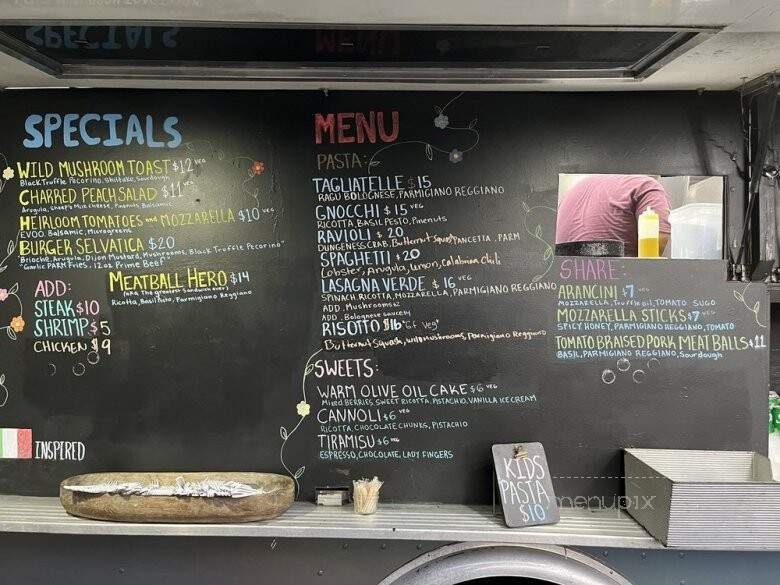 SPECIALS
WILD MUSHROOM TOAST $12 VEG
Black Truffle Pecorino, Shiitake, Sourdough
CHARRED PEACH SALAD $11 VEG
Arugula, Sheep's Milk Cheese, Pinenuts, Balsamic
HEIRLOOM TOMATOES and MOZZARELLA $10 VEG
EVOO, Balsamic, Microgreens
BURGER SELVATICA $20
Brioche, Arugula, Dijon Mustard, Mushrooms, Black Truffle Pecorino"
"Garlic PARM Fries, 12oz Prime Beef"
MEATBALL HERO $14
(AKA The greatest Sandwich ever)
Ricotta, Basil Pesto, Parmigiano Reggiano
ADD:
STEAK $10
SHRIMP $5
CHICKEN $9
INSPIRED
MENU
PASTA:
TAGLIATELLE $15
RAGU BOLOGNESE, PARMIGIANO REGGIANO
GNOCCHI $15 VEG
RICOTTA, BASIL PESTO, Pinenuts
RAVIOLI $20
DUNGENESS CRAB, Butternut Squash, PANCETTA, PARM
SPAGHETTI $20
Lobster, Arugula, Lemon, Calabrian Chili
LASAGNA VERDE $16 VEG
SPINACH, RICOTTA, MOZZARELLA, PARMIGIANO REGGIANO
ADD. Mushrooms
ADD. Bolognese
RISOTTO $16 "GF Veg"
Butternut Squash, wild mushrooms, Parmigiano Reggiano
SWEETS:
WARM OLIVE OIL CAKE $6 VEG
MIXED BERRIES, SWEET RICOTTA, PISTACHIO, VANILLA ICE CREAM
CANNOLI $6 VEG
RICOTTA, CHOCOLATE CHUNKS, PISTACHIO
TIRAMISU $6 VEG
ESPRESSO, CHOCOLATE, LADY FINGERS
SHARE:
ARANCINI $7 VEG
MOZZARELLA, Truffle oil, TOMATO SUGO
MOZZARELLA STICKS $7 VEG
SPICY HONEY, PARMIGIANO REGGIANO, TOMATO
TOMATO BRAISED PORK MEATBALLS $11
BASIL, PARMIGIANO REGGIANO, Sourdough
KIDS
PASTA
$10
menupix